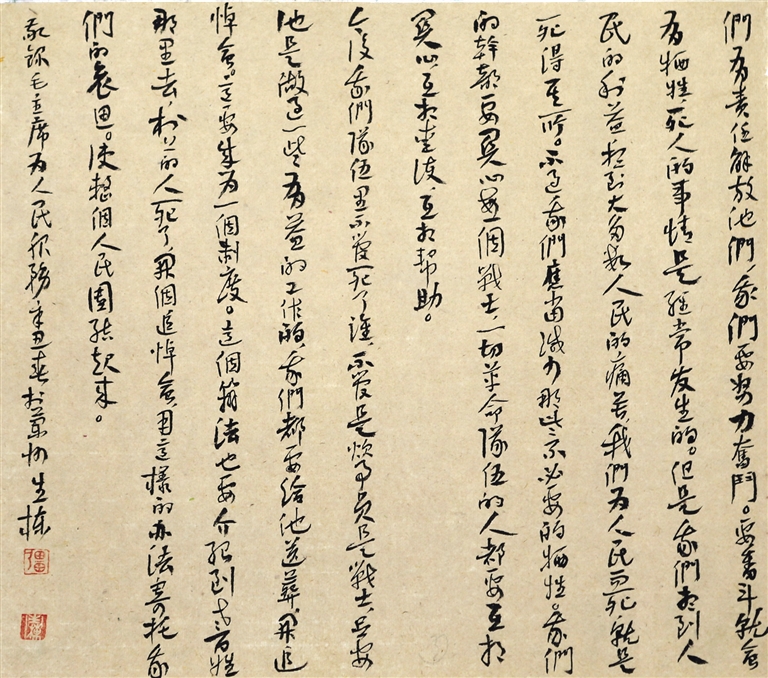 們有責任解放他們,我們要努力奮鬥。要奮斗就會
有牺牲,死人的事情是經常发生的。但是我們想到人
民的利益想到大多數人民的痛苦,我們为人民而死,就是
死得其所。不过我們應當减少那些不必要的牺牲。我們
的幹部要関心每一個戰士一切革命隊伍的人都要互相
関心,互相爱護,互相幫助。
今後我們隊伍里不管死了誰,不管是炊事員是戰士,只要
他是做过一些有益的工作的,我們都要給他送葬,開追
悼會。这要成为一個制度。這個法也要介紹到老百姓
那里去,村上的人死了,開個追悼會用這樣的办法寄托我
們的哀思。使整個人民團結起來。
敬錄毛主席为人民服務辛丑春於蘭州生棟